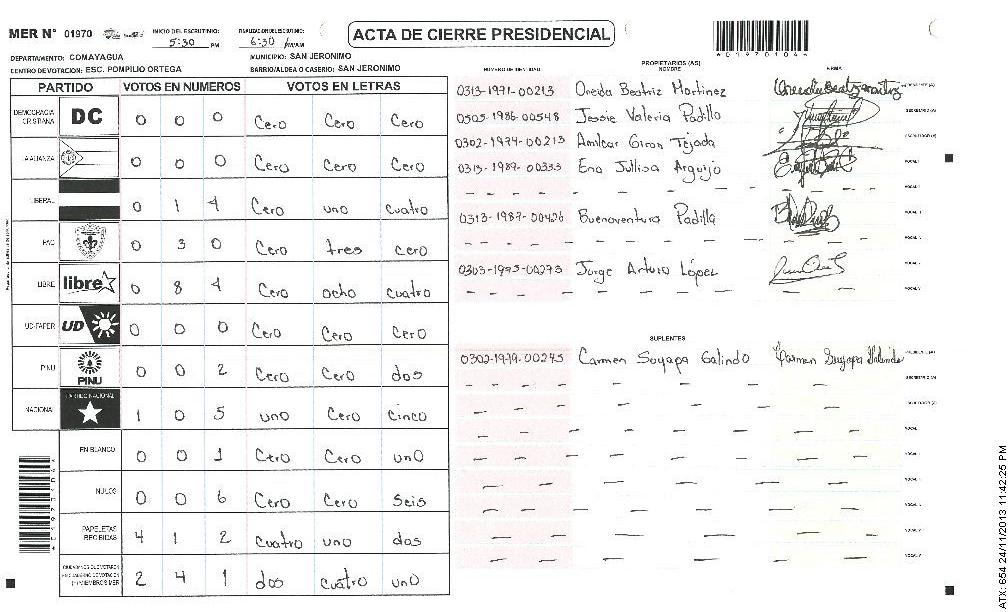 MER N° 01970
INICIO DEL ESCRUTINIO: 5:30 PM
FINALIZACION DEL ESCRUTINIO: 6:30 PM/AM
ACTA DE CIERRE PRESIDENCIAL
*01970104*
DEPARTAMENTO: COMAYAGUA
MUNICIPIO: SAN JERONIMO
CENTRO DE VOTACION: ESC. POMPILIO ORTEGA
BARRIO/ALDEA O CASERIO: SAN JERONIMO
PARTIDO VOTOS EN NUMEROS VOTOS EN LETRAS
DEMOCRACIA CRISTIANA DC 0 0 0 Cero Cero Cero
LA ALIANZA 0 0 0 Cero Cero Cero
LIBERAL 0 1 4 Cero uno cuatro
PAC 0 3 0 Cero tres cero
LIBRE libre 0 8 4 Cero ocho cuatro
UD-FAPER UD 0 0 0 Cero Cero Cero
PINU PINU 0 0 2 Cero Cero dos
NACIONAL PARTIDO NACIONAL 1 0 5 uno Cero Cinco
EN BLANCO 0 0 1 Cero Cero uno
NULOS 0 0 6 Cero Cero Seis
PAPELETAS RECIBIDAS 4 1 2 Cuatro uno dos
CIUDADANOS QUE VOTARON 2 4 1 dos cuatro uno
PROPIETARIOS (AS)
NUMERO DE IDENTIDAD NOMBRE FIRMA
0313-1971-00213 Oneida Beatriz Martinez PRESIDENTE (A)
0505-1986-00548 Jessie Valeria Padillo SECRETARIO (A)
0302-1974-00213 Amilcar Giron Tejada ESCRUTADOR (A)
0313-1989-00333 Ena Jullisa Arguijo VOCAL I
VOCAL II
0313-1987-00426 Buenaventura Padilla VOCAL III
VOCAL IV
0303-1975-00273 Jorge Arturo López
VOCAL V
SUPLENTES
0302-1979-00245 Carmen Suyapa Galindo Carmen Suyapa Galindo PRESIDENTE (A)
SECRETARIO (A)
ESCRUTADOR (A)
VOCAL I
ATX: 654 24/11/2013 11:42:25 PM